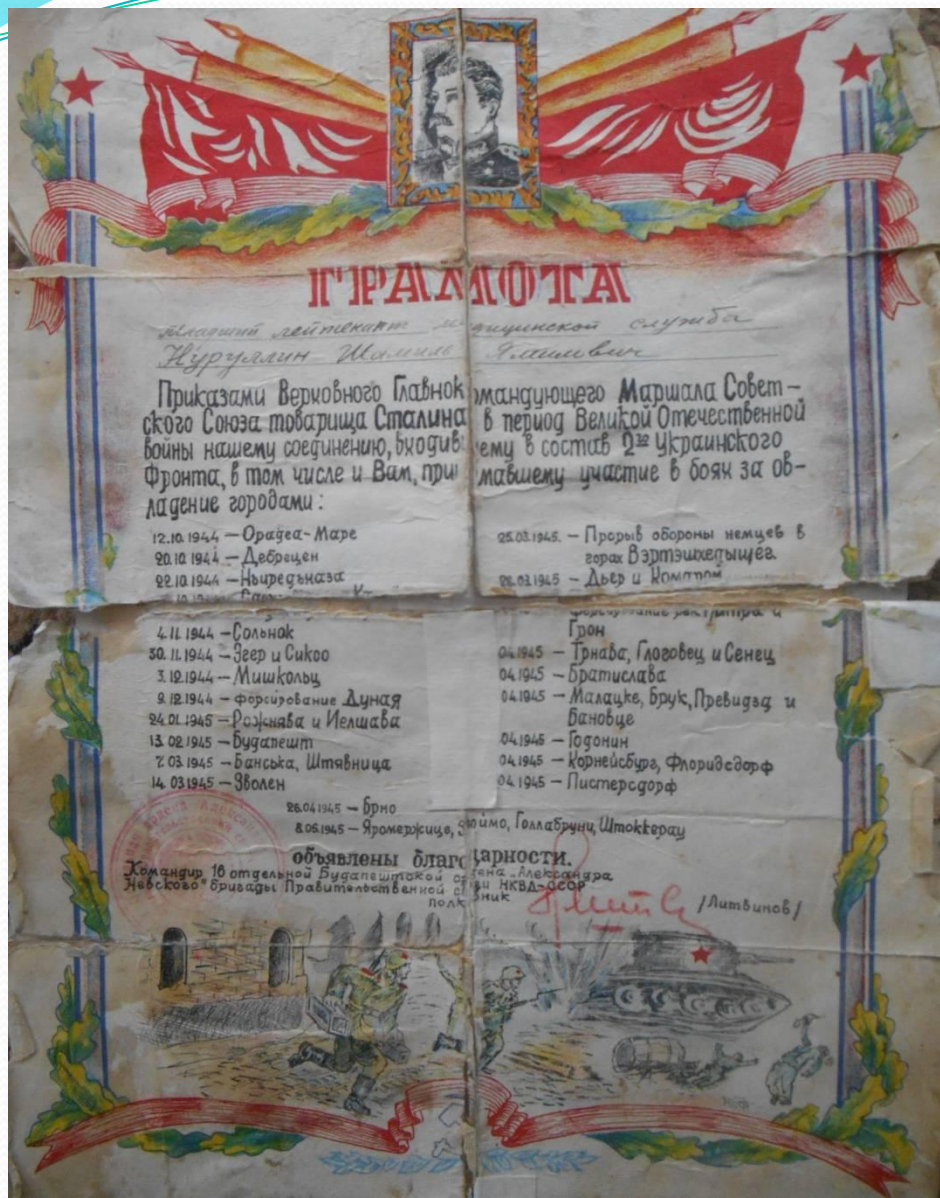 ГРАМОТА
Младший лейтенант медицинской служба
Нуруллин Шамиль
Приказами Верховного Главнокомандующего Маршала Совет-
ского Союза товарища Сталина в период Великой Отечественной
войны нашему соединению, входив ему в состав 2го Украинского
Фронта, в том числе и Вам, при мавшему участие в боях за ов-
ладение городами:
12.10.1944 – Орадеа-Маре
20.10.1944 – Дебрецен
22.10.1944 – Ньиредьхаза
4.11.1944 – Сольнок
30.11.1944 – Эгер и Сикоо
3.12.1944 – Мишкольц
9.12.1944 – форсирование Дуная
24.01.1945 – Рожнява и Иелшава
13.02.1945 – Будапешт
7.03.1945 – Банська, Штявница
14.03.1945 – Зволен
25.03.1945. – Прорыв обороны немцев в
горах Вэртэшхедьшег.
28.03.1945 – Дьер и Комаром
форсирование рек и
Грон
04.1945 – Трнава, Глоговец и Сенец
04.1945 – Братислава
04.1945 – Малацке, Брук, Превидза и
Бановце
04.1945 – Годонин
04.1945 – Корнейсбург, Флоридсдорф
04.1945 – Пистерсдорф
26.04.1945 – Брно
8.05.1945 – Яромержице, Зноймо, Голлабрунн, Штоккерау
объявлены благодарности.
Командир 16 отдельной Будапештской ордена „Александра
Невского" бригады Правительственной связи НКВД-СССР
полковник /Литвинов/